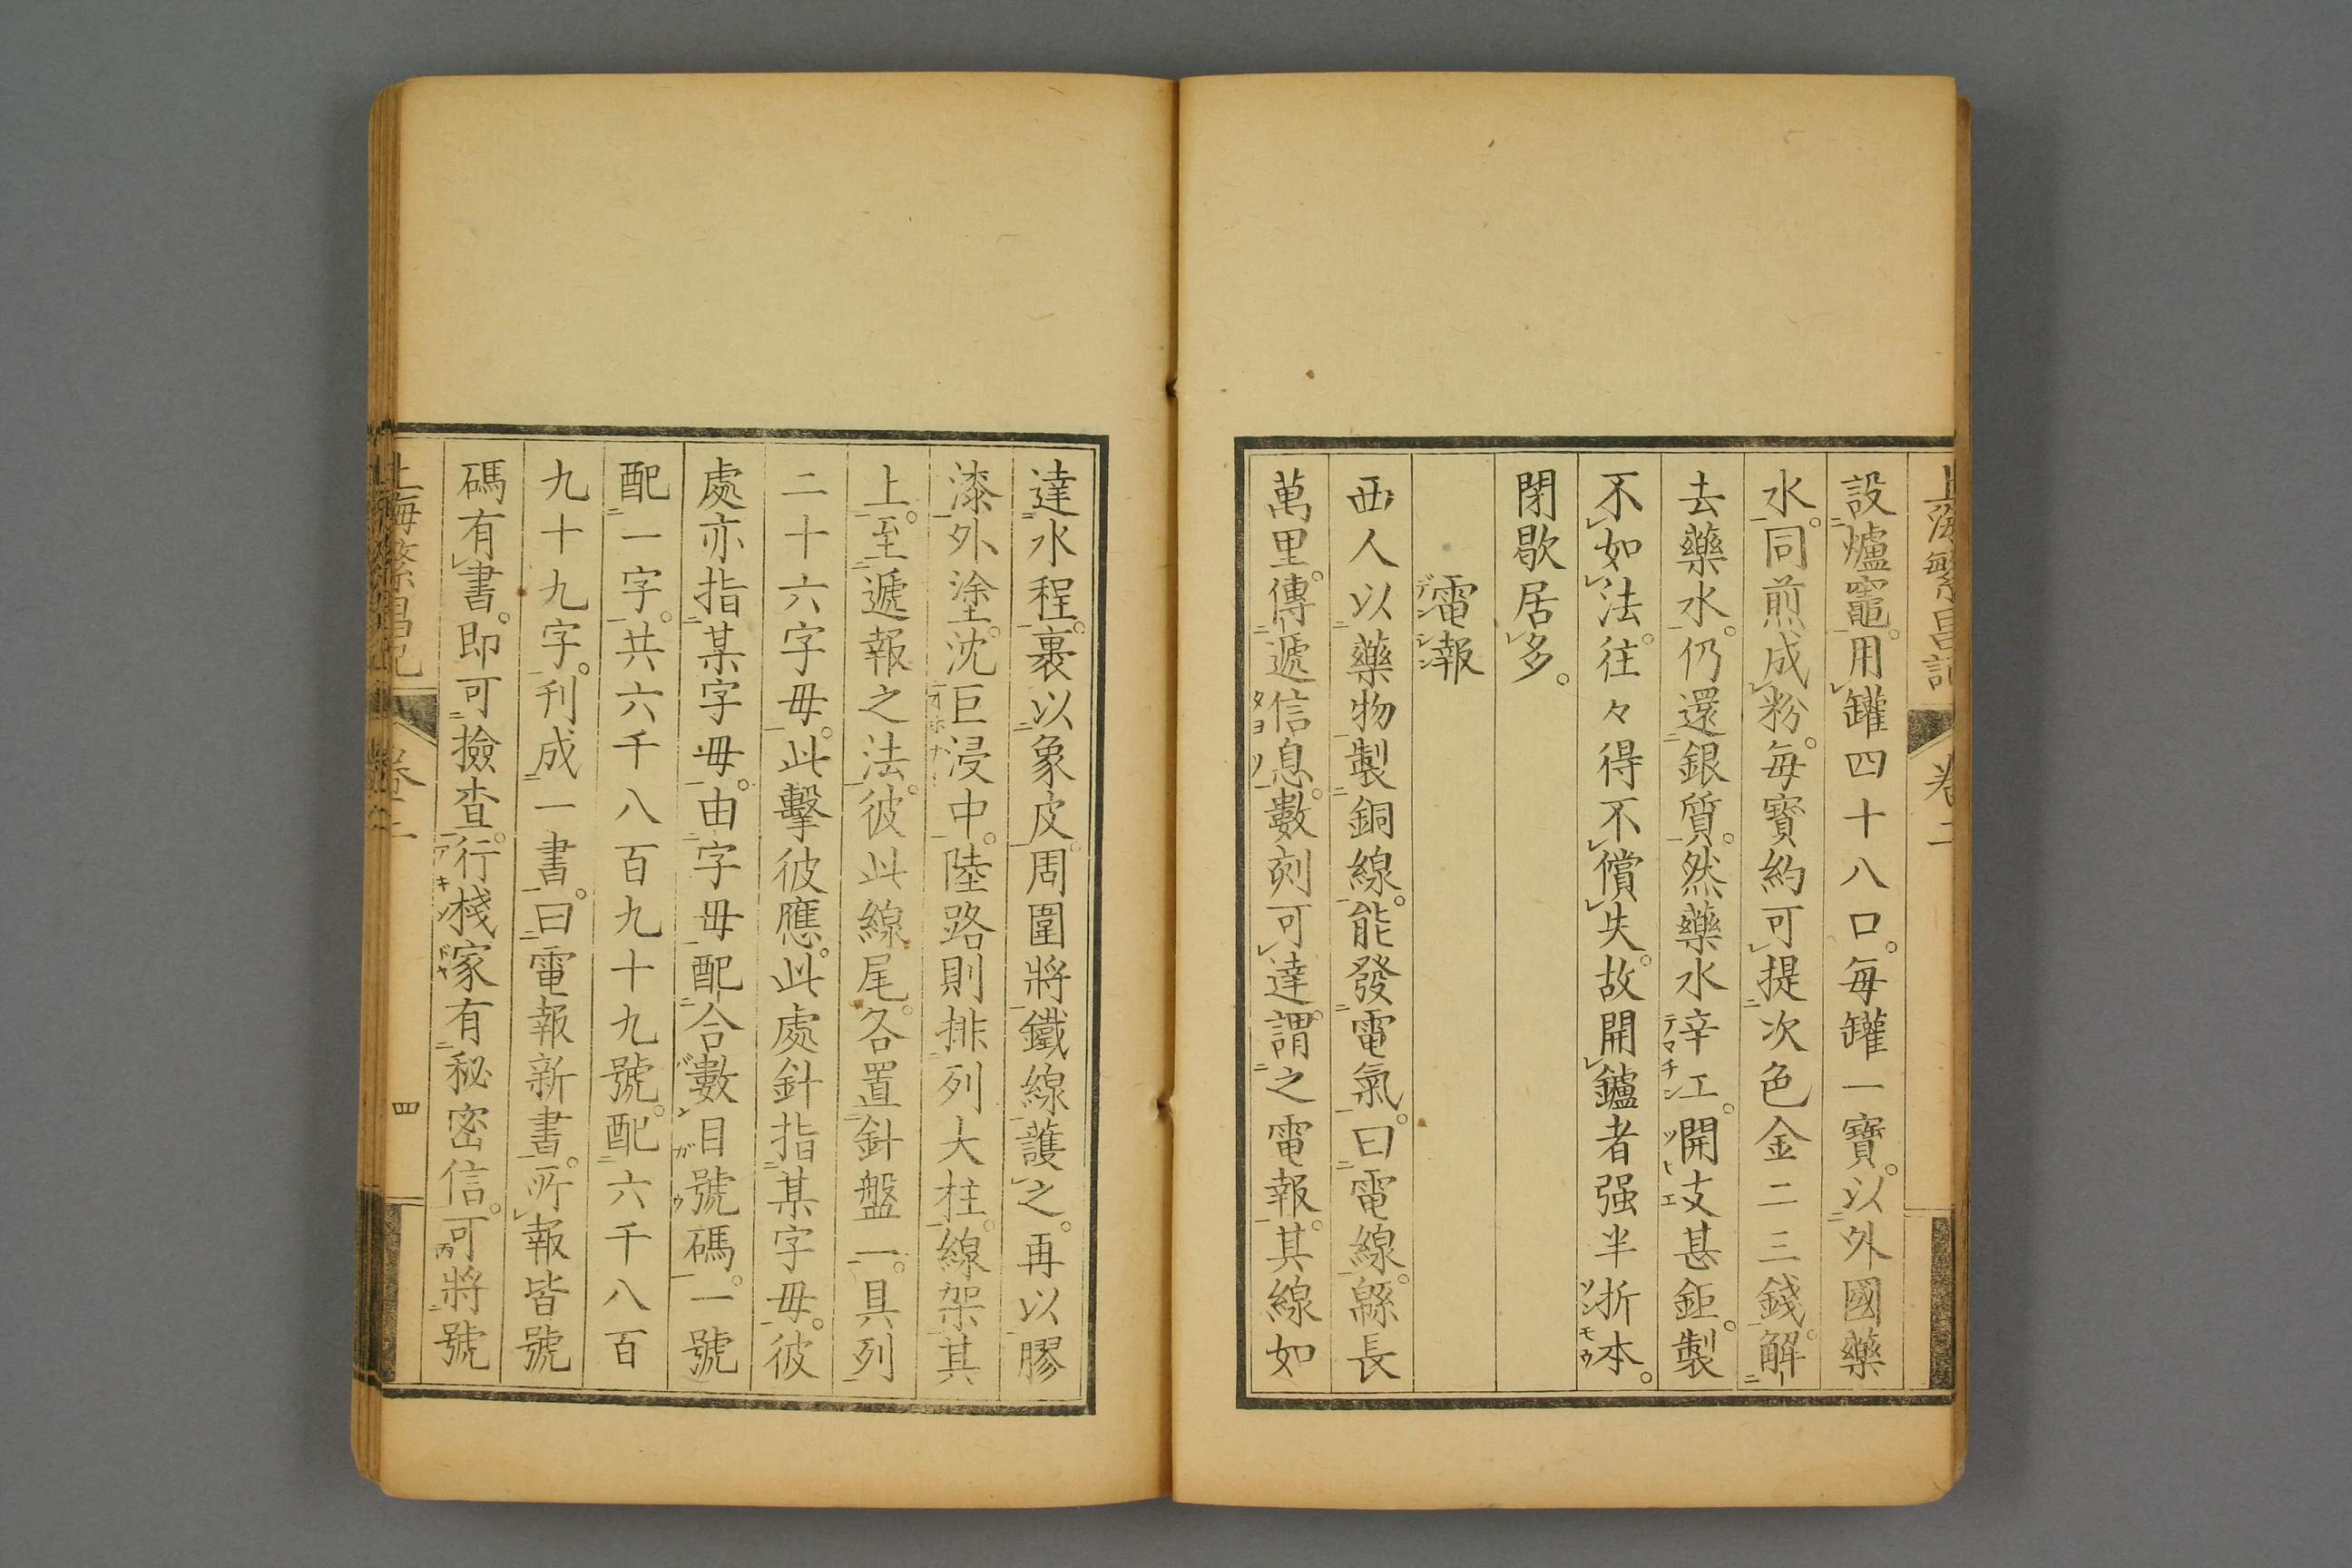 上海繁昌記 卷二
設爐竈。用罐四十八口。每罐一寶。以外國藥
水。同煎成粉。每寶約可提次色金二三錢。解
去藥水。仍還銀質。然藥水辛工。開支甚鉅。製
不如法。往々得不償失。故開鑪者强半折本。
閉歇居多。
電報
西人以藥物製銅線。能發電氣。曰電線。緜長
萬里。傳遞信息。數刻可達。謂之電報。其線如
達水程。裹以象皮。周圍將鐵線護之。再以膠
漆外塗。沈巨浸中。陸路則排列大柱。線架其
上。至遞報之法。彼此線尾。各置針盤一。具列
二十六字毋。此擊彼應。此處針指某字毋。彼
處亦指某字毋。由字毋配合數目號碼。一號
配一字。共六千八百九十九號。配六千八百
九十九字。刊成一書。曰電報新書。所報皆號
碼有書。即可撿查。行棧家有秘密信。可將號
上海繁昌記 卷二 四